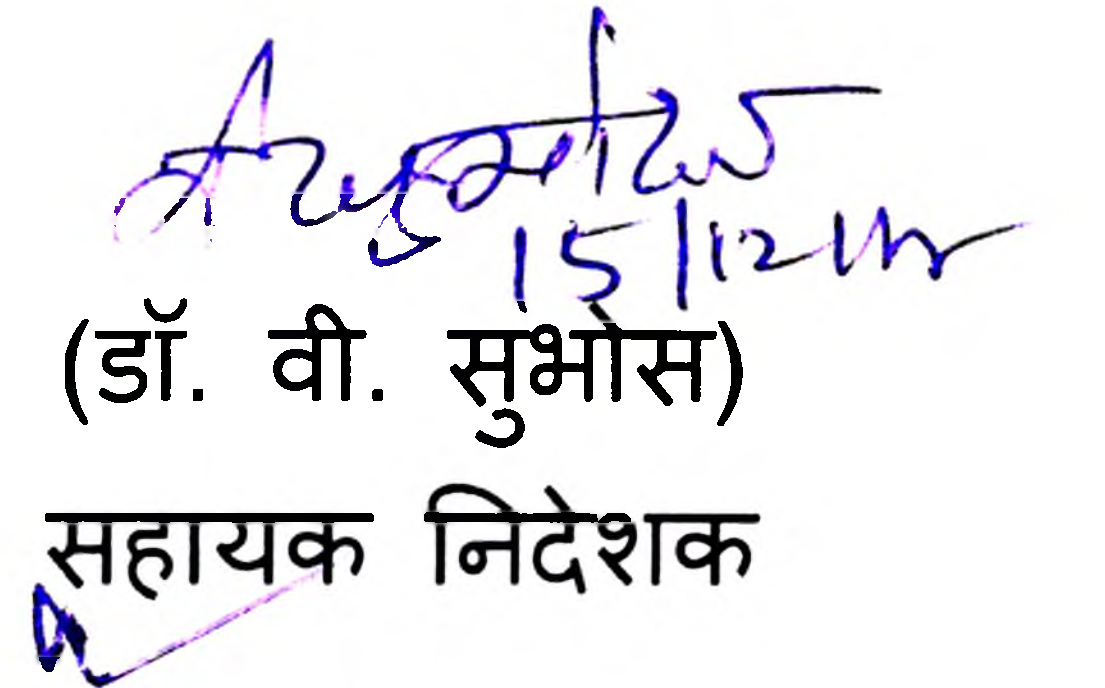 15/12
(डॉ. वी. सुंभोस)
सहायक निदेशक